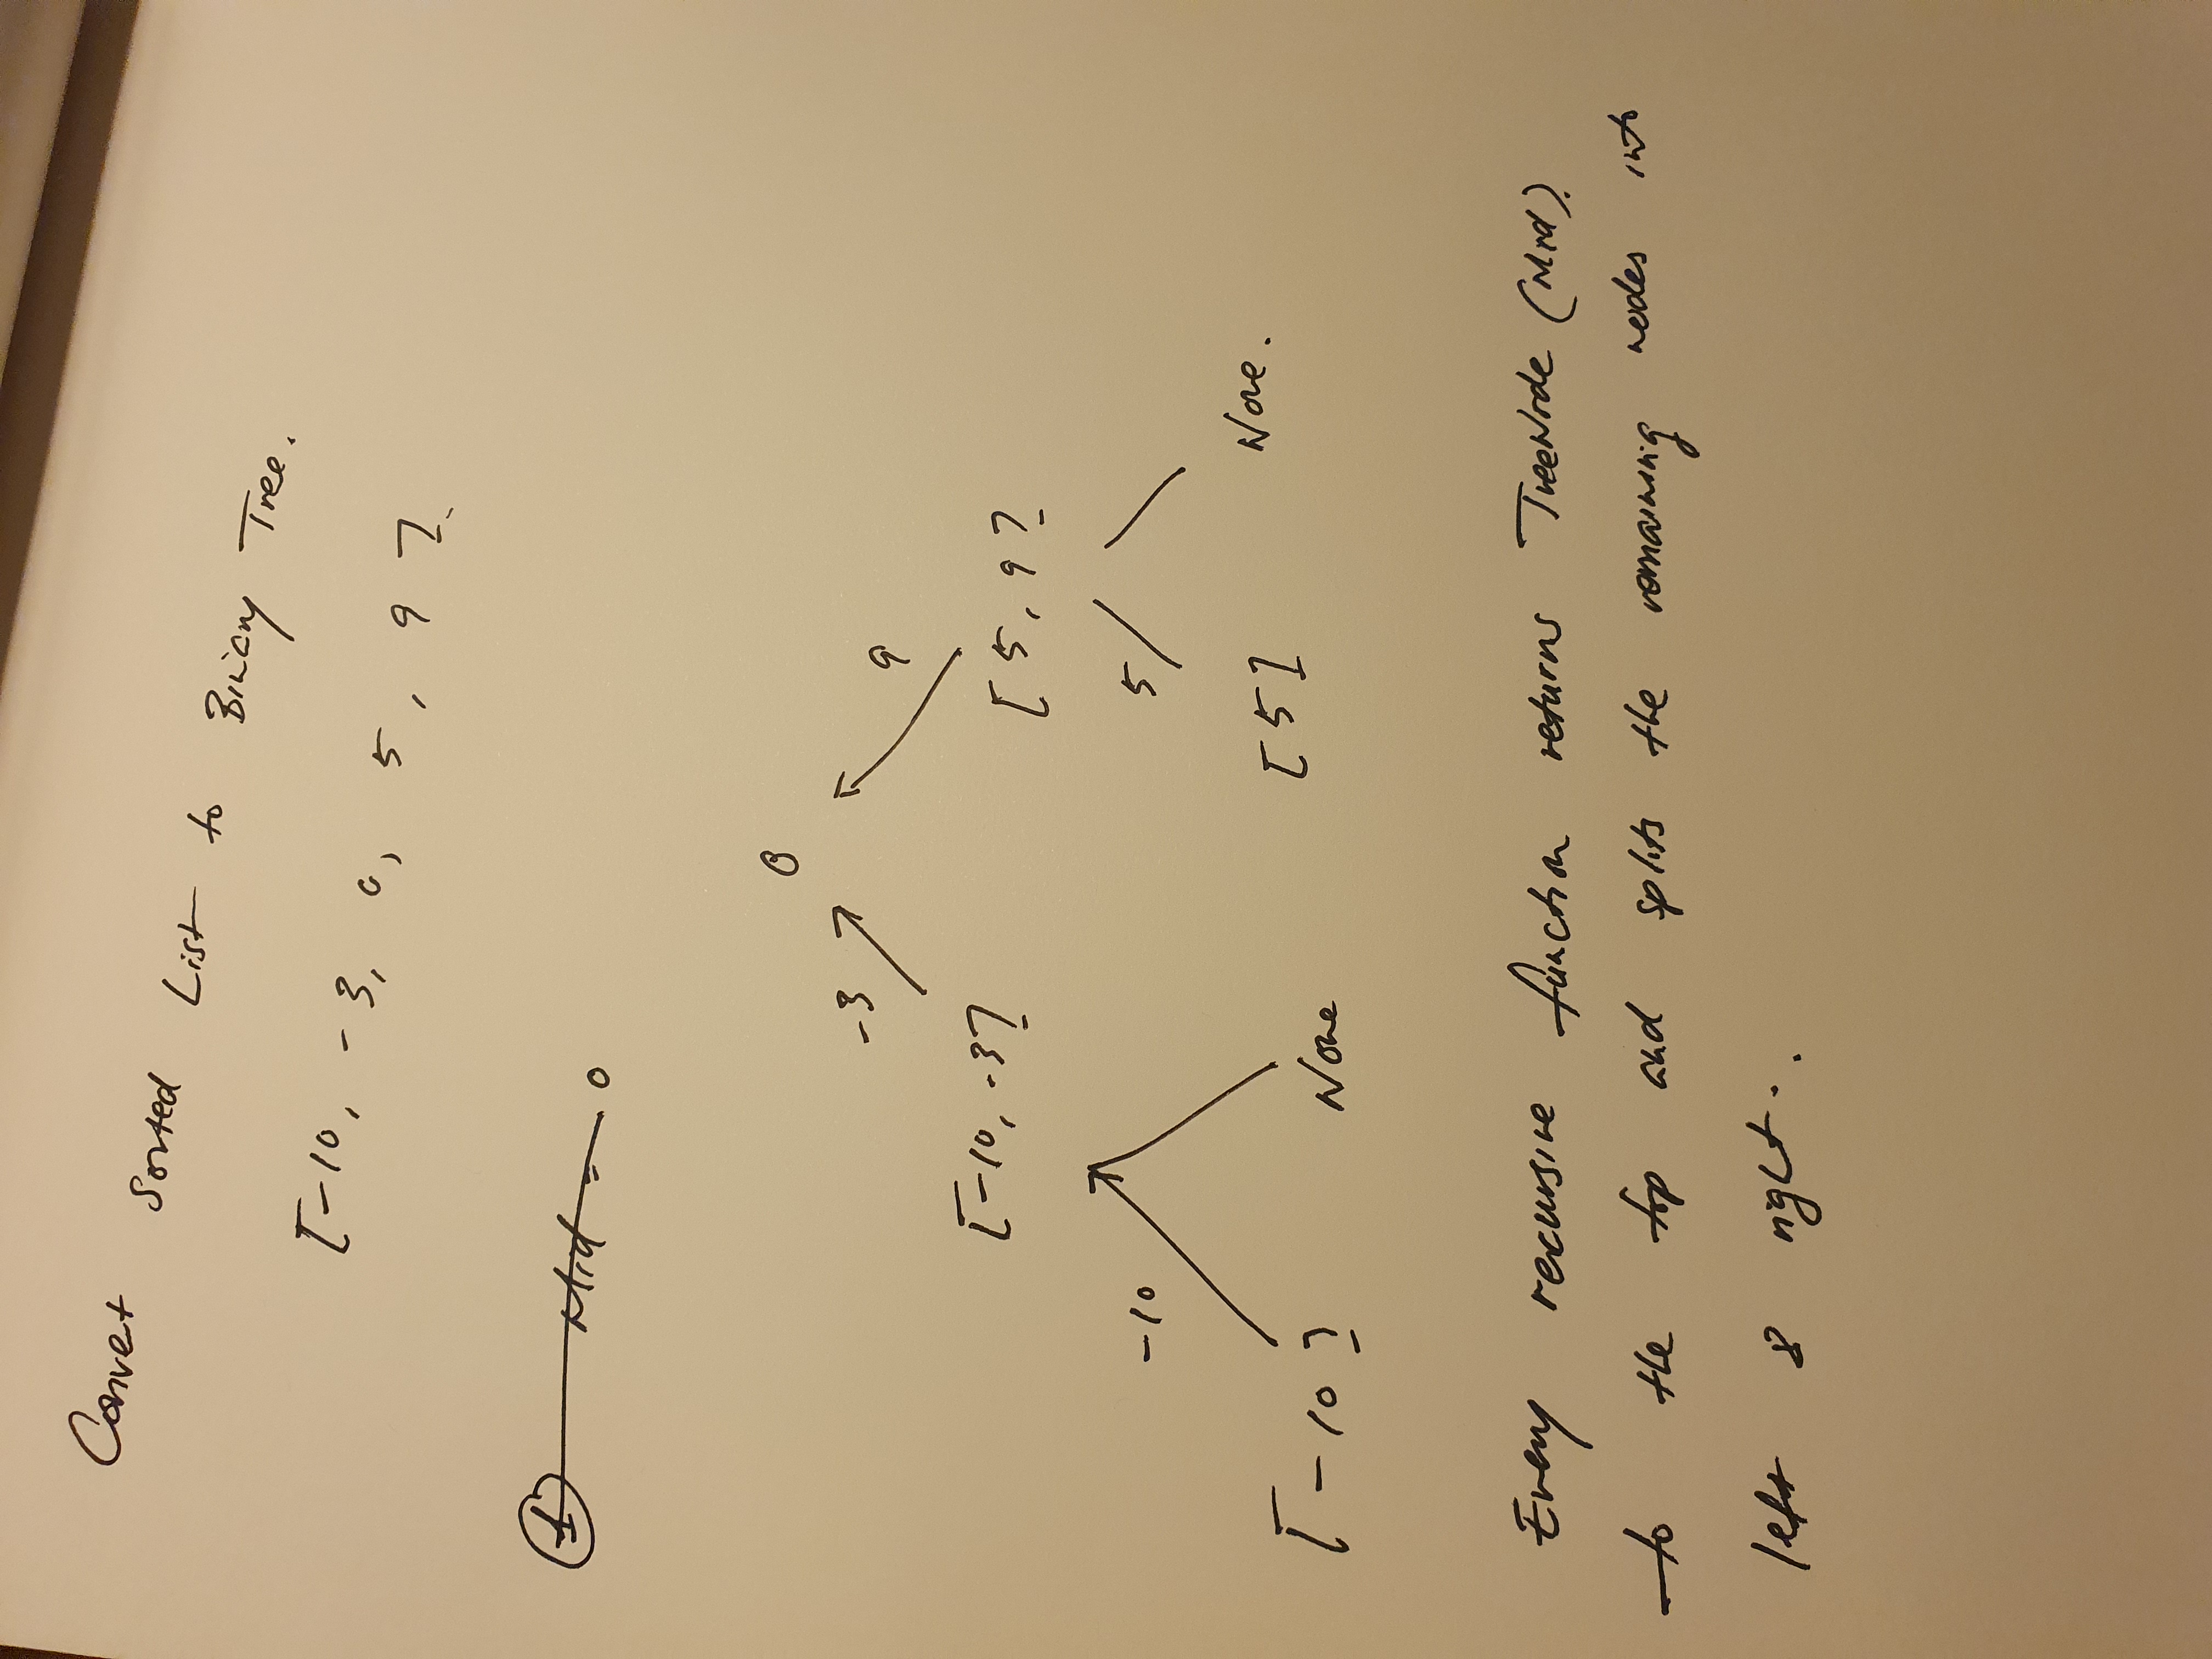 Convet Sorted List to Binary Tree.
[-10, -3, 0, 5, 9].
1 Mid = 0
0
-3 9
[-10, -3] [5, 9]
-10 5
[-10] None [5] None.
Every recursive function returns TreeNode (Mid).
to the top and splits the remaining nodes into
left & right.